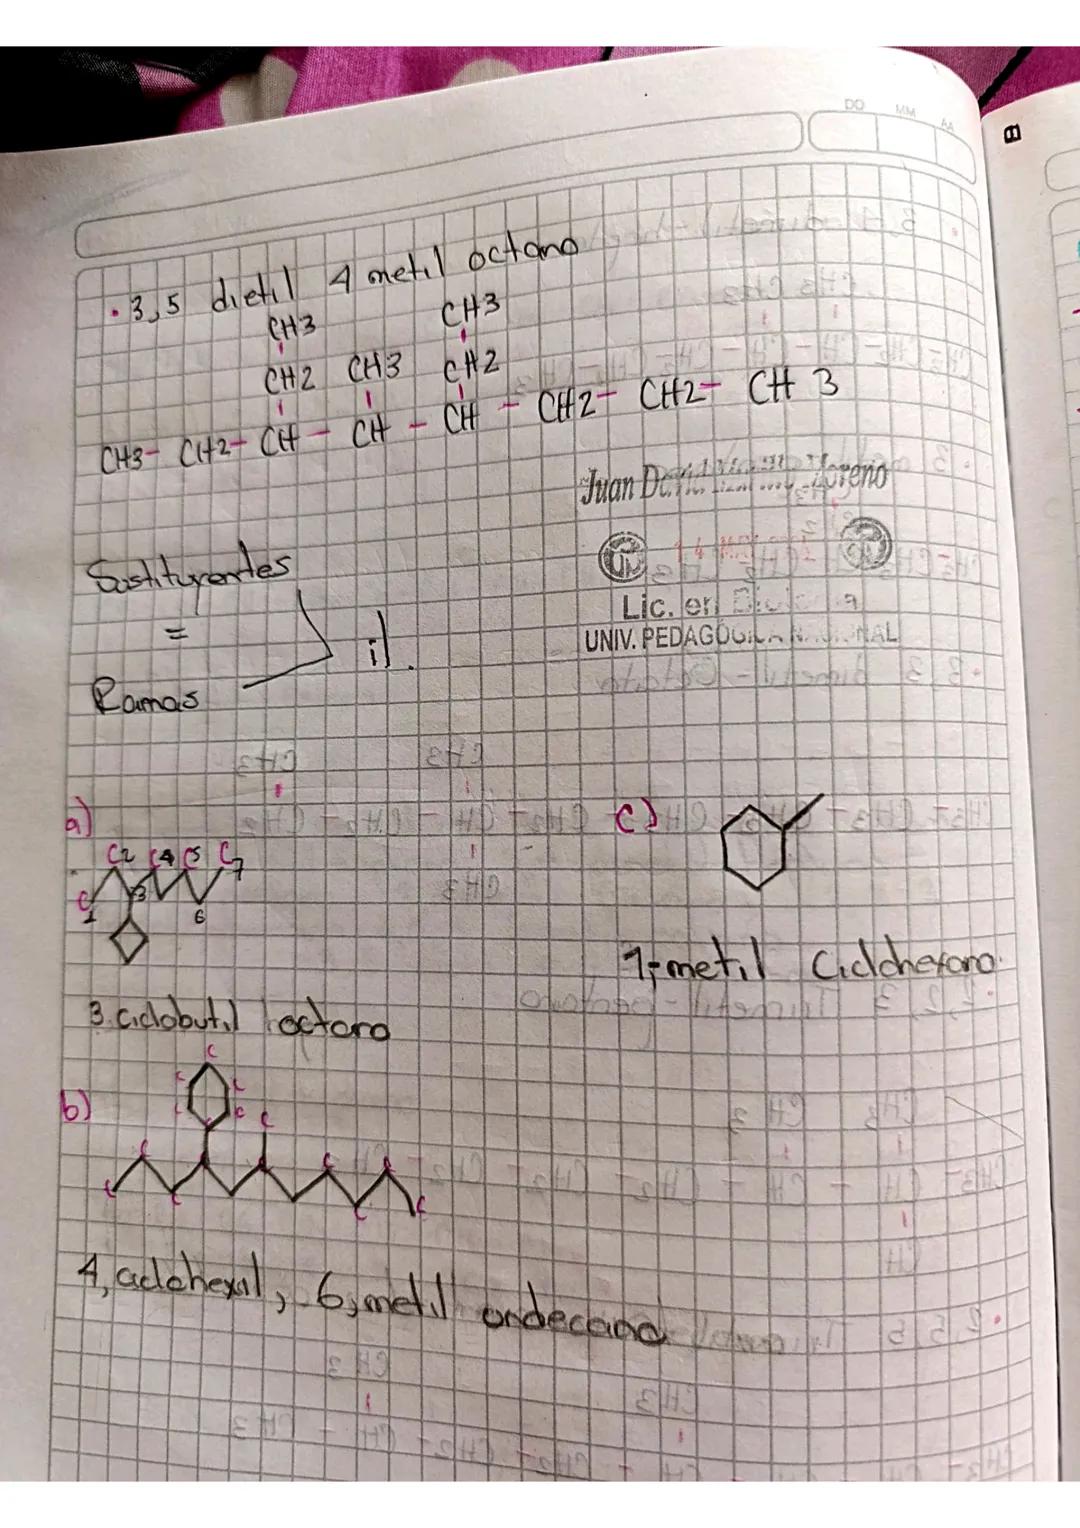 DO MM AA
· 3,5 dietil 4 metil octano
CH3 CH3
CH2 CH3 CH2
CH3- CH2- CH - CH - CH - CH2- CH2- CH 3
Juan
Lic. en
UNIV. PEDAGOGICA NACIONAL
Sustituyentes
=
Ramas
il.
a)
C2 C4 C5 C7
C1 3 6
3. ciclobutil octano
c)
1,-metil Ciclohexano.
b)
C
C C
C C C
C C C
C C C C
4, ciclohexil, 6,metil undecano